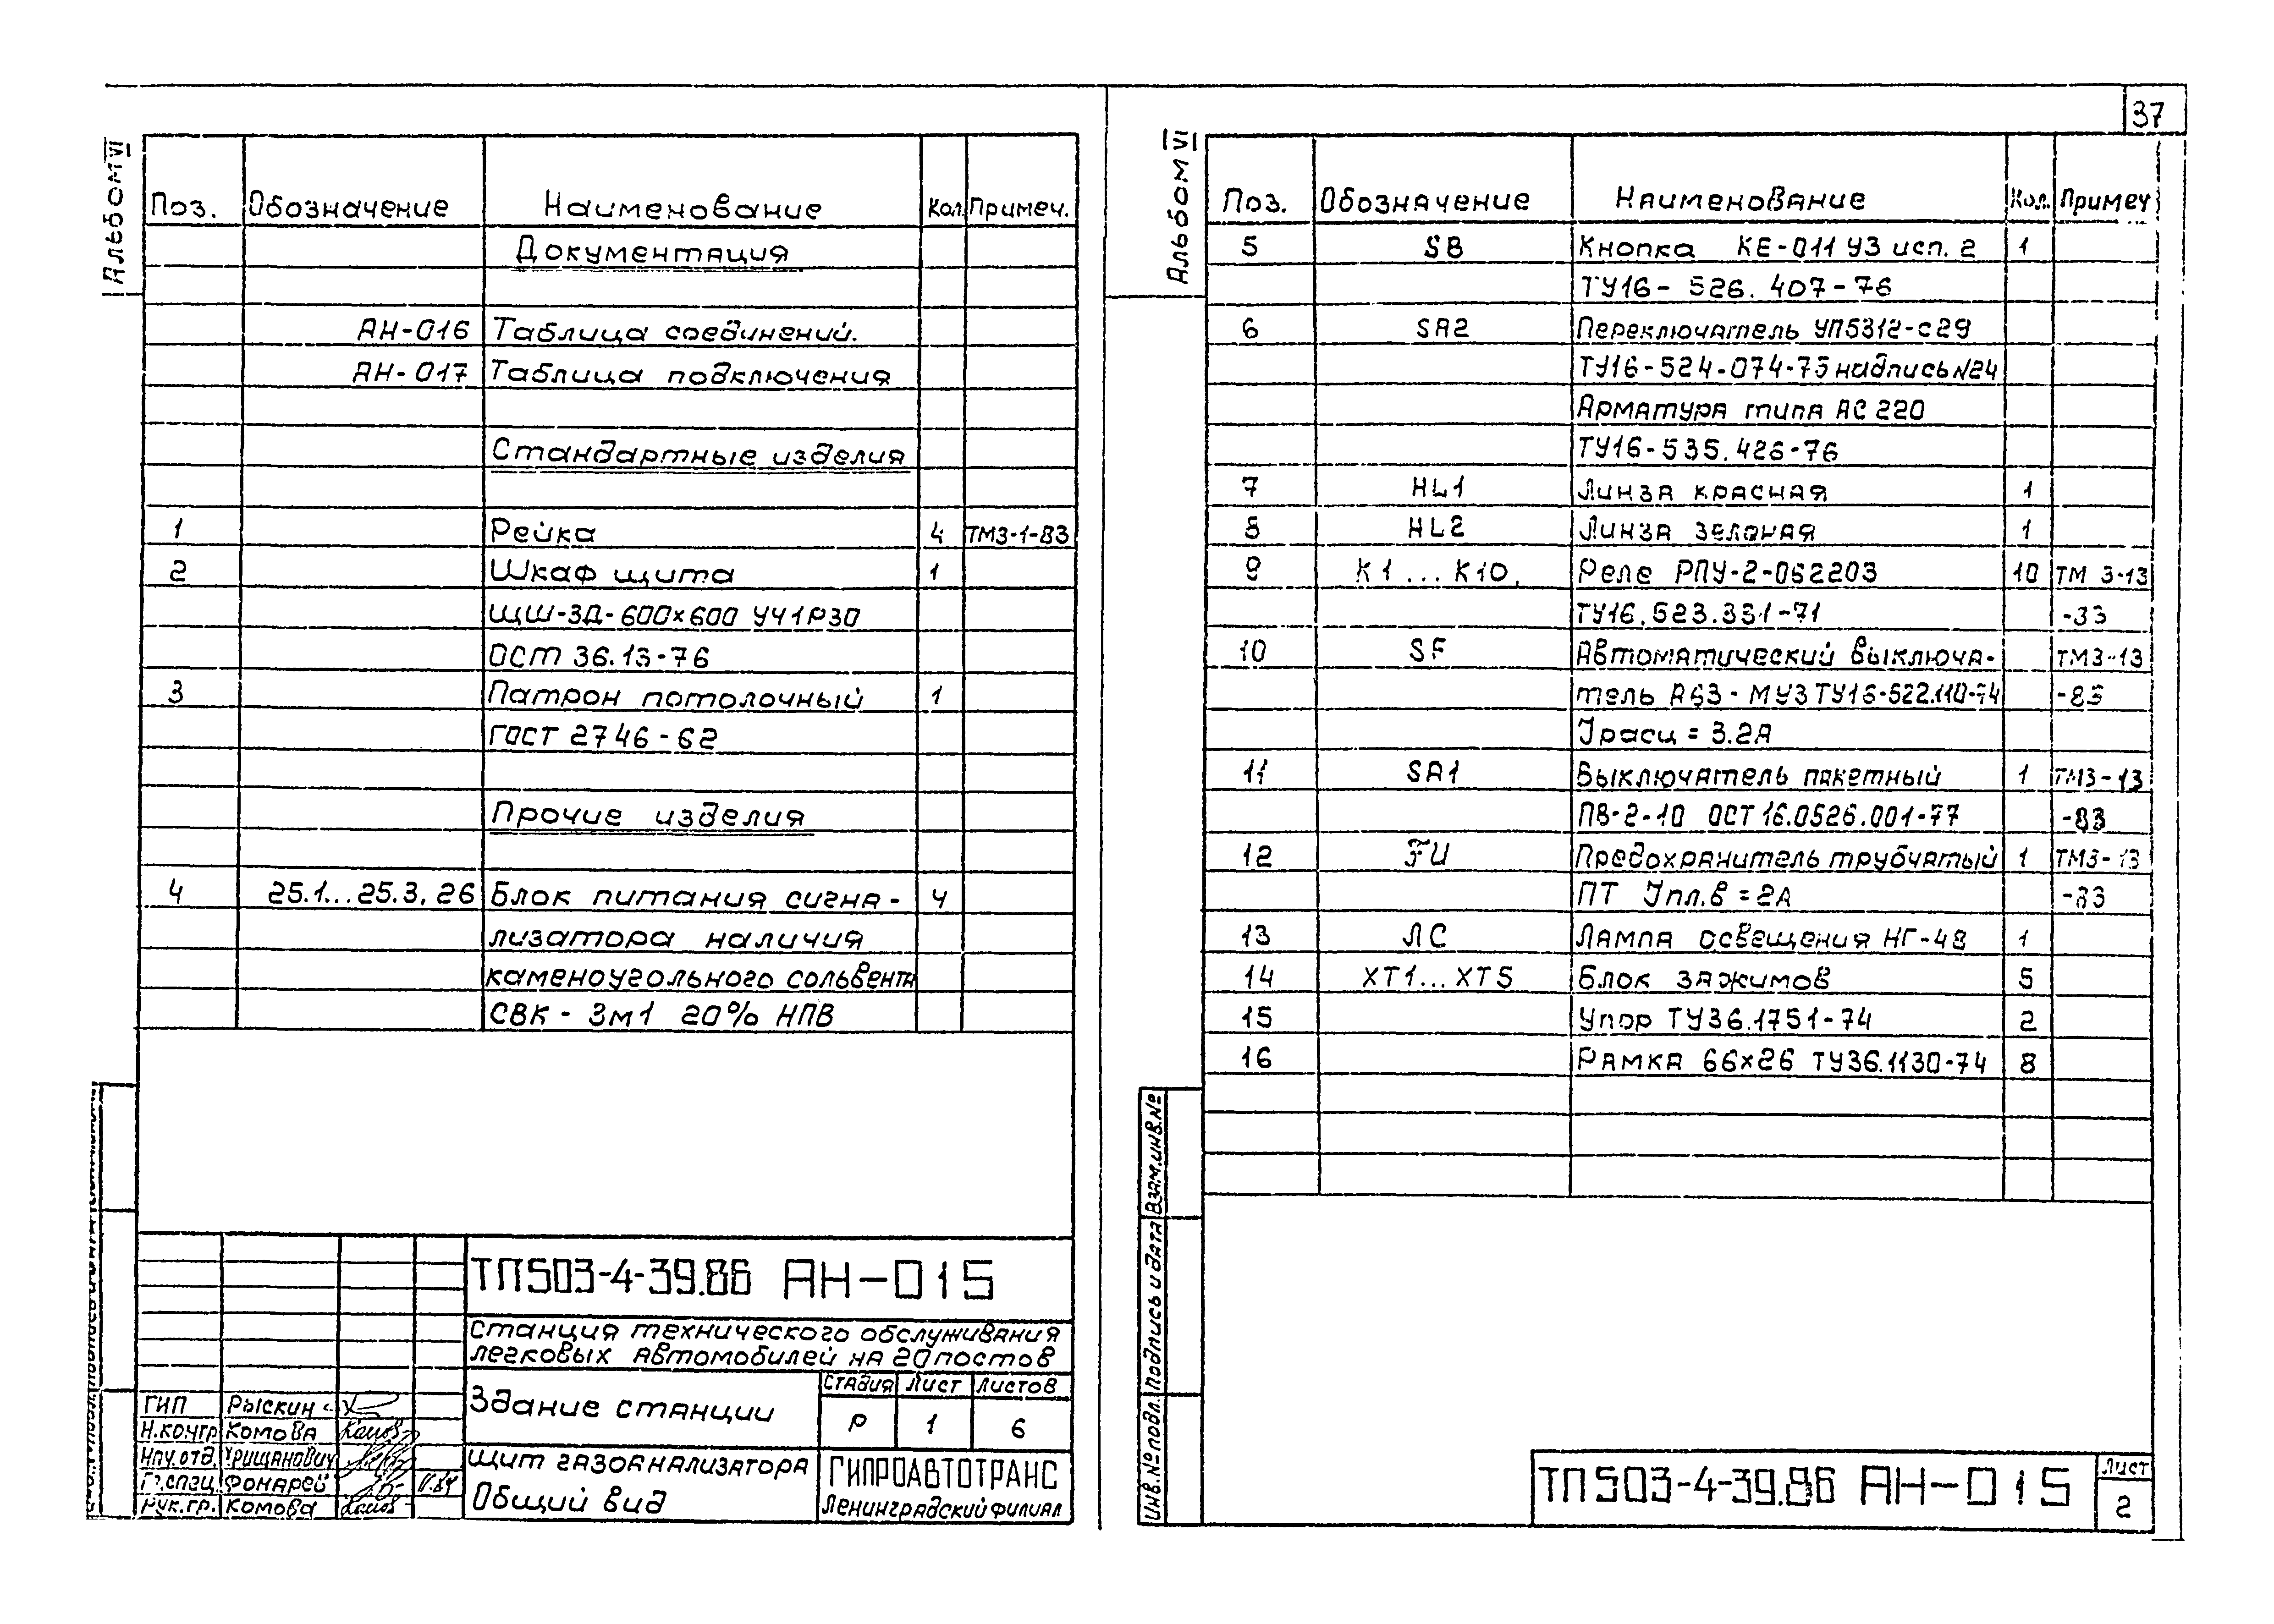 37
Альбом VI
Поз. Обозначение Наименование Кол. Примеч.
Документация
АН-016 Таблица соединений.
АН-017 Таблица подключения
Стандартные изделия
1 Рейка 4 ТМ3-1-83
2 Шкаф щита 1
ЩШ-ЗД-600×600 УЧ1Р30
ОСТ 36.13-76
3 Патрон потолочный 1
ГОСТ 2746-62
Прочие изделия
4 25.1...25.3, 26 Блок питания сигна- 4
лизатора наличия
каменоугольного сольвента
СВК-3м1 20% НПВ
ТП503-4-39.86 АН-015
Станция технического обслуживания
легковых автомобилей на 20 постов
Здание станции
Стадия Лист Листов
Р 1 6
Щит газоанализатора
Общий вид
ГИПРОАВТОТРАНС
Ленинградский филиал
ГИП Рыскин
Н.контр Комова
Нач.отд. Урищанович
Гл.спец. Фонарев
Рук.гр. Комова
Альбом VI
Поз. Обозначение Наименование Кол. Примеч
5 SB Кнопка КЕ-011 У3 исп. 2 1
ТУ16-526.407-76
6 SA2 Переключатель УП5312-с29
ТУ16-524-074-75 надпись №24
Арматура типа АС 220
ТУ16-535.426-76
7 HL1 Линза красная 1
8 HL2 Линза зеленая 1
9 К1...К10. Реле РПУ-2-062203 10 ТМ 3-13
ТУ16.523.331-71 -83
10 SF Автоматический выключа- ТМ3-13
тель А63-МУ3 ТУ16-522.110-74 -83
Iрасц = 3.2А
11 SA1 Выключатель пакетный 1 ТМ3-13
ПВ-2-10 ОСТ 16.0526.001-77 -83
12 FU Предохранитель трубчатый 1 ТМ3-13
ПТ Iпл.в = 2А -83
13 ЛС Лампа освещения НГ-48 1
14 ХТ1...ХТ5 Блок зажимов 5
15 Упор ТУ36.1751-74 2
16 Рамка 66×26 ТУ36.1130-74 8
Инв.№ подл. Подпись и дата Взам.инв.№
ТП503-4-39.86 АН-015
Лист
2